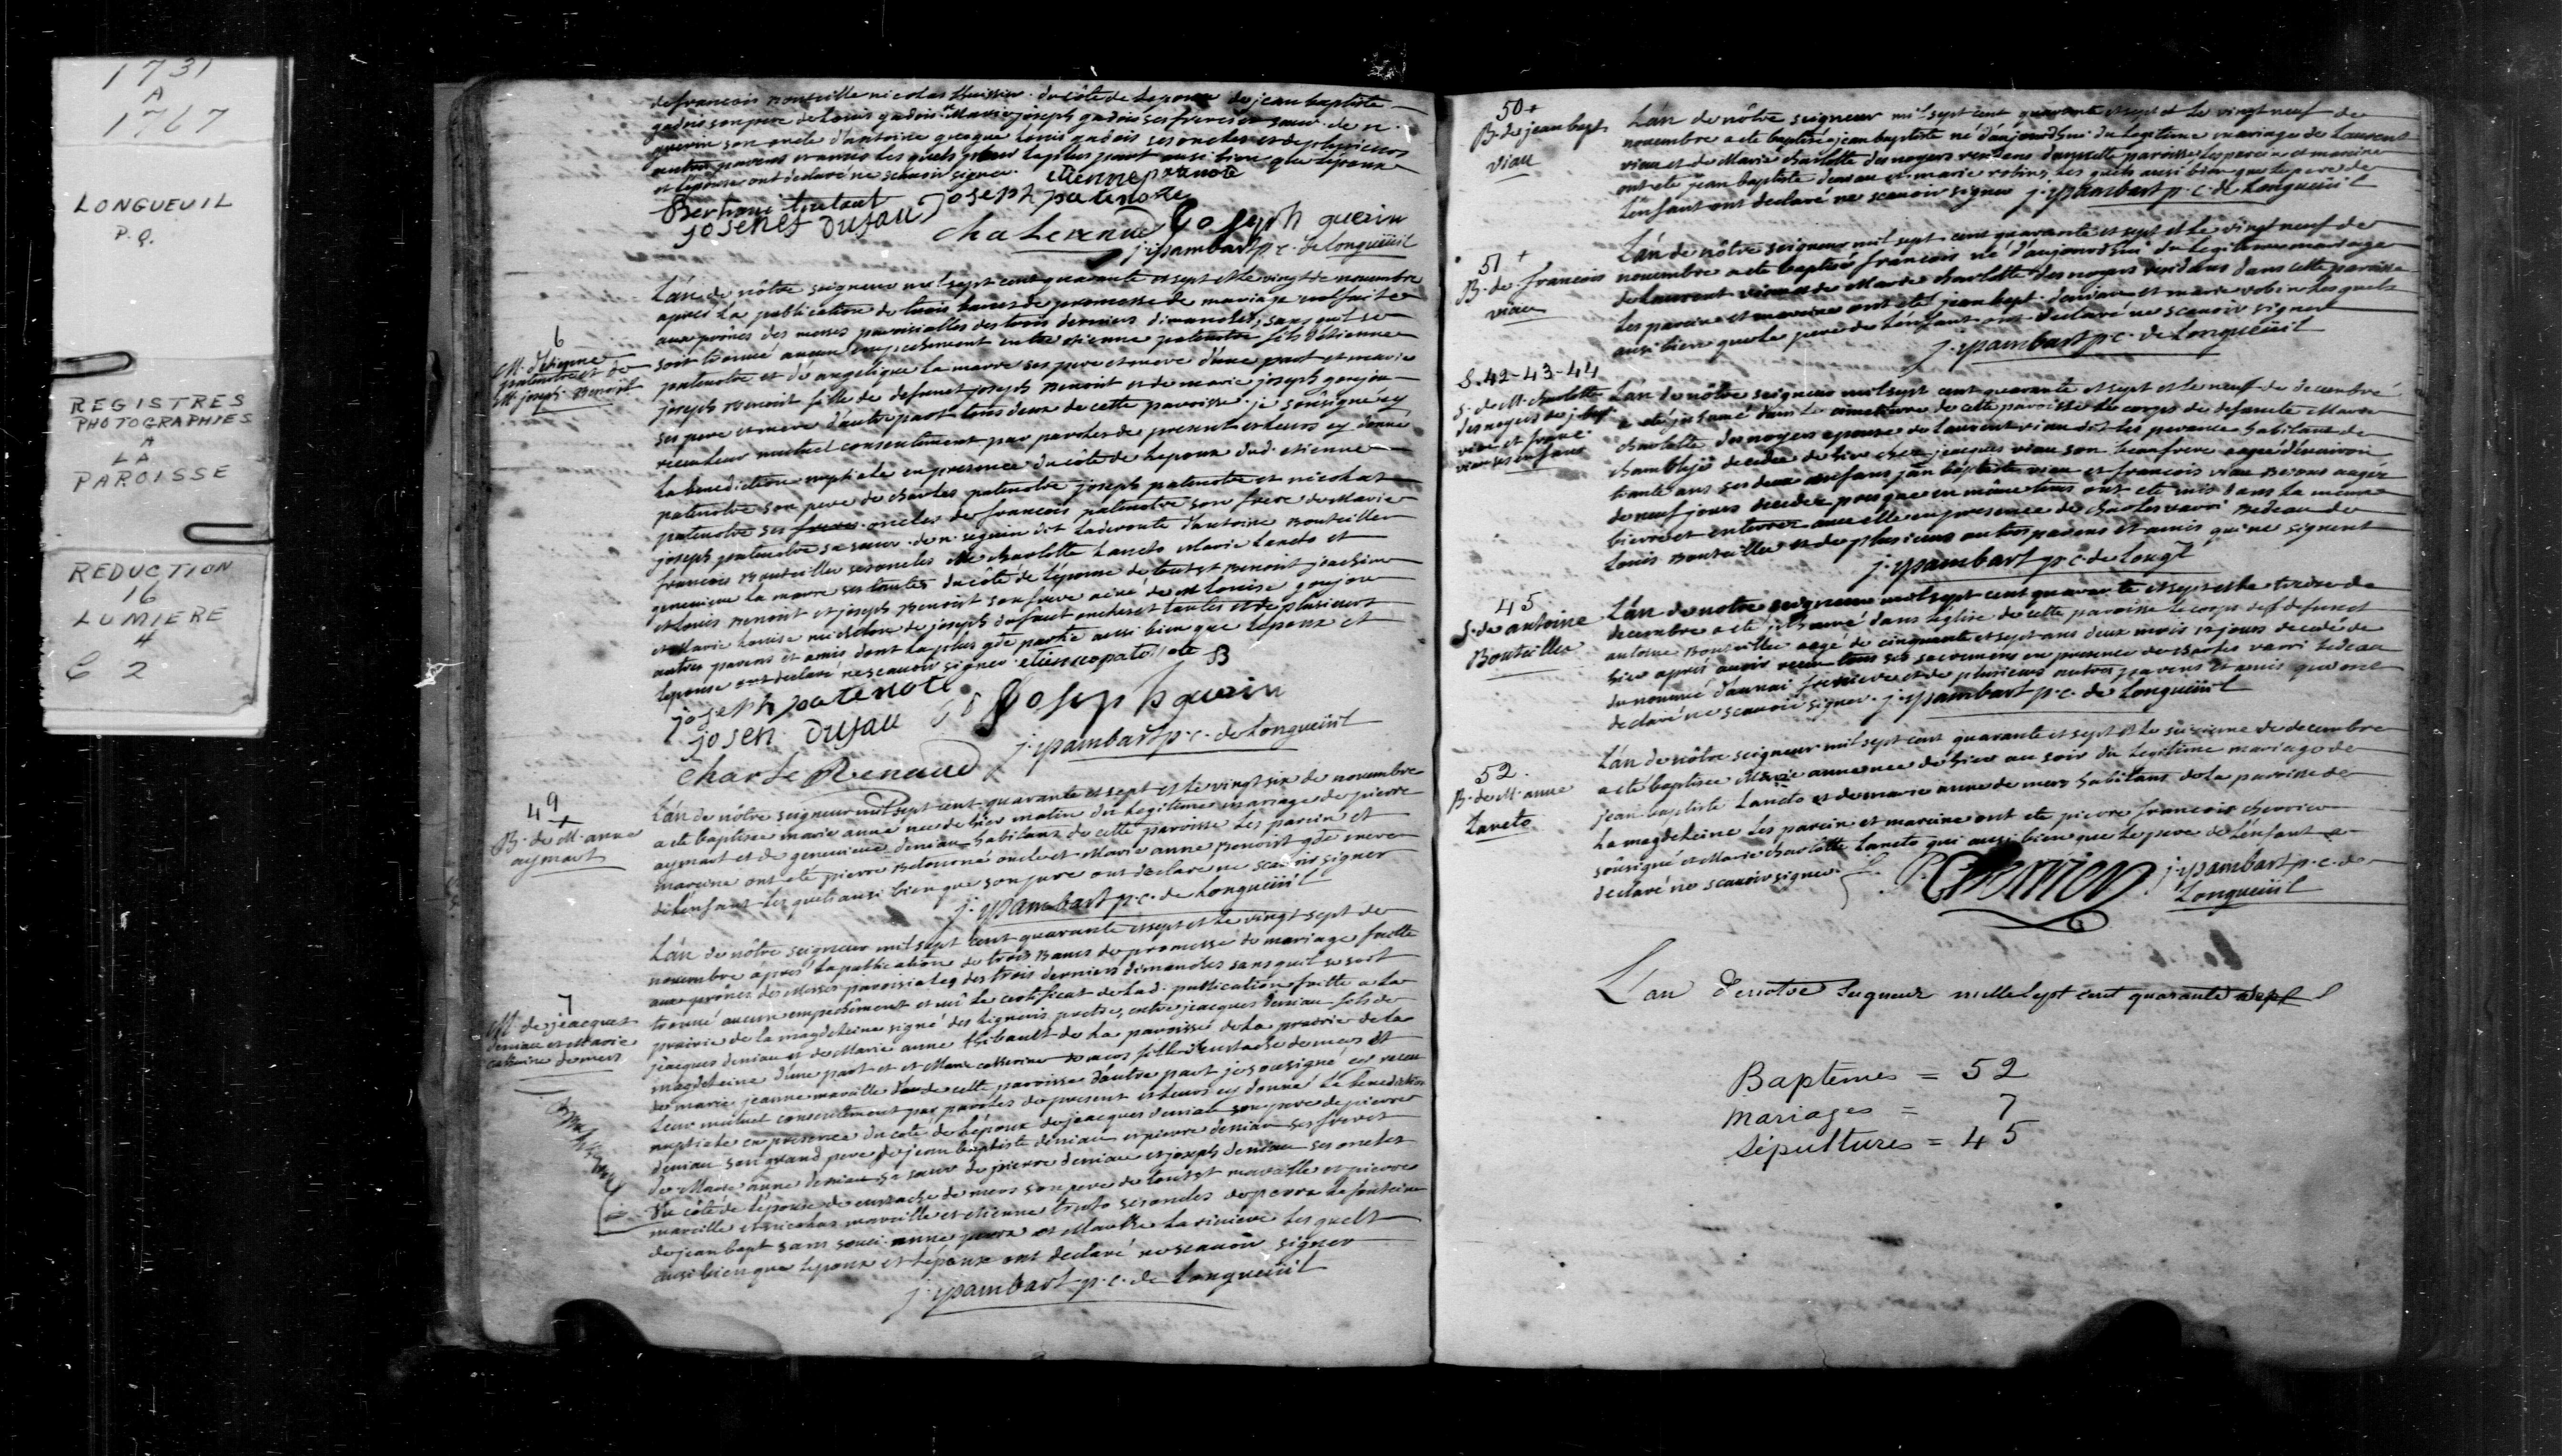 1731
A
1767
LONGUEUIL
P.Q.
REGISTRES
PHOTOGRAPHIES
A
LA
PAROISSE
REDUCTION
16
LUMIERE
4
C 2
de francois bouteille nicolas du côté de lepouse de jean baptiste
gadois son pere de Louis gadois Marie joseph gadois ses freres et soeur de n.
guerin son oncle d'antoine Louis gadois ses oncles et de plusieurs
autres parens et amis les quels pour la plus part aussi bien que lepoux
et lepouse ont declaré ne scavoir signer. etienne patenote
joseph patenotte
joseph Dufau
Cha Lerenau Joseph guerin
j. ysambart p.c. de Longueüil
6
M. d'etienne
patenotre et de
M. joseph Benoist
L'an de nôtre seigneur mil sept cent quarante et sept et le vingt de novembre
aprés la publication de trois bancs de promesse de mariage faite
aux prônes des messes paroissialles des trois derniers dimanches, sans quil se
soit trouvé aucun empechement entre etienne patenotre fils d'étienne
patenotre et de angelique la marre ses pere et mere d'une part et marie
joseph Benoist fille de defunct joseph Benoist et de marie joseph goujon
ses pere et mere d'autre part tous deux de cette paroisse. je soussigné ay
receu leur mutuel consentement par paroles de present et leurs ay donné
la benediction nuptiale en presence du côté de lepoux dud. etienne
patenotre son pere de charles patenotre joseph patenotre et nicolas
patenotre ses freres oncles de francois patenotre son frere de Marie
joseph patenotre sa soeur de n. seguin dit laderoute d'antoine Bouteiller
francois Bouteiller ses oncles de charlotte Lancto Marie Lancto et
genevieve la marre ses tantes du côté de lépouse de toussst Benoist joachim
et Louis Benoist et joseph Benoist son frere ainé de M Louise goujon
et Marie Louise de joseph dufaut oncles et tantes et de plusieurs
autres parens et amis dont la plus gde partie aussi bien que lepoux et
lepouse ont declaré ne scavoir signer etienne patenote
joseph patenote Joseph guerin
josep Dufau
j. ysambart p.c. de Longueüil
Charle Renaud
49
+
B. de M. anne
aymart
L'an de nôtre seigneur mil sept cent quarante et sept et le vingt six de novembre
a ete baptisée marie anne née de hier matin du legitime mariage de pierre
aymart et de genevieve deniau habitans de cette paroisse les parein et
mareine ont eté pierre Betourné oncle et Marie anne Benoist gde mere
de l'enfant les quels aussi bien que son pere ont declare ne scavoir signer
j. ysambart p.c. de Longueüil
7
M. de jeacques
deniau et Marie
catherine demers
L'an de nôtre seigneur mil sept cent quarante et sept et le vingt sept de
novembre aprés la publication de trois Bancs de promesse de mariage faitte
aux prônes des Messes paroissiales des trois derniers dimanches sans quil se soit
trouvé aucun empechement et vû le certificat de lad. publication faitte a la
prairie de la magdeleine signé des ligneris pretre, entre jeacques deniau fils de
jeacques deniau et de Marie anne thibault de la paroisse de la prairie de la
magdeleine d'une part et et Marie catherine demers fille d'eustache demers et
de marie jeanne maville de cette paroisse d'autre part je soussigné ay receu
leur mutuel consentement par paroles de present et leurs ay donné la benediction
nuptiale en presence du coté de lepoux de jeacques deniau son pere de pierre
deniau son grand pere de jean baptiste deniau et pierre deniau ses freres
de Marie anne deniau sa soeur de pierre deniau et joseph deniau ses oncles
du côté de lépouse de eustache demers son pere de toussst et pierre
et nicolas et etienne ses oncles de pierre la fontaine
de jean bapt sans souci anne et Lariviere les quels
aussi bien que lepoux et lépouse ont declaré ne scavoir signer
j. ysambart p.c. de Longueüil
50+
B. de jean bapt
viau
L'an de nôtre seigneur mil sept cent quarante et sept et le vingt neuf de
novembre a ete baptisé jean baptiste né d'aujourdhui du legitime mariage de Laurent
viau et de Marie charlotte des noyers residens dans cette paroisse, les parein et mareine
ont ete jean baptiste deniau et marie robin, les quels aussi bien que le pere de
l'enfant ont declaré ne scavoir signer j. ysambart p.c. de Longueüil
51 +
B. de francois
viau
L'an de nôtre seigneur mil sept cent quarante et sept et le vingt neuf de
novembre a ete baptisé francois né d'aujourdhui du legitime mariage
de Laurent viau et de Marie charlotte des noyers residans dans cette paroisse
les parein et mareine ont eté jean bapt. deniau et marie robin les quels
aussi bien que le pere de l'enfant ont declaré ne scavoir signer
j. ysambart p.c. de Longueüil
S. 42-43-44
S. de M. charlotte
des noyers de j. bapt
viau et franc.
viau ses enfans
L'an de nôtre seigneur mil sept cent quarante et sept et le neuf de decembre
a eté inhumé dans le cimetiere de cette paroisse le corps de defuncte Marie
charlotte des noyers epouse de Laurent viau dit habitant de
chambly decedée de hier chez jacques viau son beaufrere agée d'environ
trante ans ses deux enfans jean baptiste viau et francois viau besons aagés
de neuf jours decedez presque en même tems ont eté mis dans la meme
bierre et enterrez avec elle en presence de charles varri Bedeau de
Louis Bouteiller et de plusieurs autres parens et amis qui ne signent
j. ysambart p.c. de Longl
45
S. de antoine
Bouteiller
L'an de notre seigneur mil sept cent quarante et sept et le treize de
decembre a eté inhumé dans l'eglise de cette paroisse le corps de defunct
antoine Bouteiller aagé de cinquante et sept ans deux mois 12 jours decedé de
hier aprés avoir receu tous ses sacremens en presence de charles varri bedeau
du nommé d'aunai et de plusieurs autres parens et amis qui ont
declaré ne scavoir signer. j. ysambart p.c. de Longueüil
52.
B. de M. anne
Lancto
L'an de nôtre seigneur mil sept cent quarante et sept et le seizieme de decembre
a ete baptisée Marie anne née de hier au soir du legitime mariage de
jean baptiste Lancto et de marie anne demers habitans de la paroisse de
La magdeleine les parein et mareine ont eté pierre francois cherrier
soussigné et Marie charlotte Lancto qui aussi bien que le pere de l'enfant a
declaré ne scavoir signer. P. Cherrier j. ysambart p.c. de
Longueüil
L'an De notre Seigneur mille Sept cent quarante et sept
Baptemes = 52
Mariages = 7
Sépultures = 45